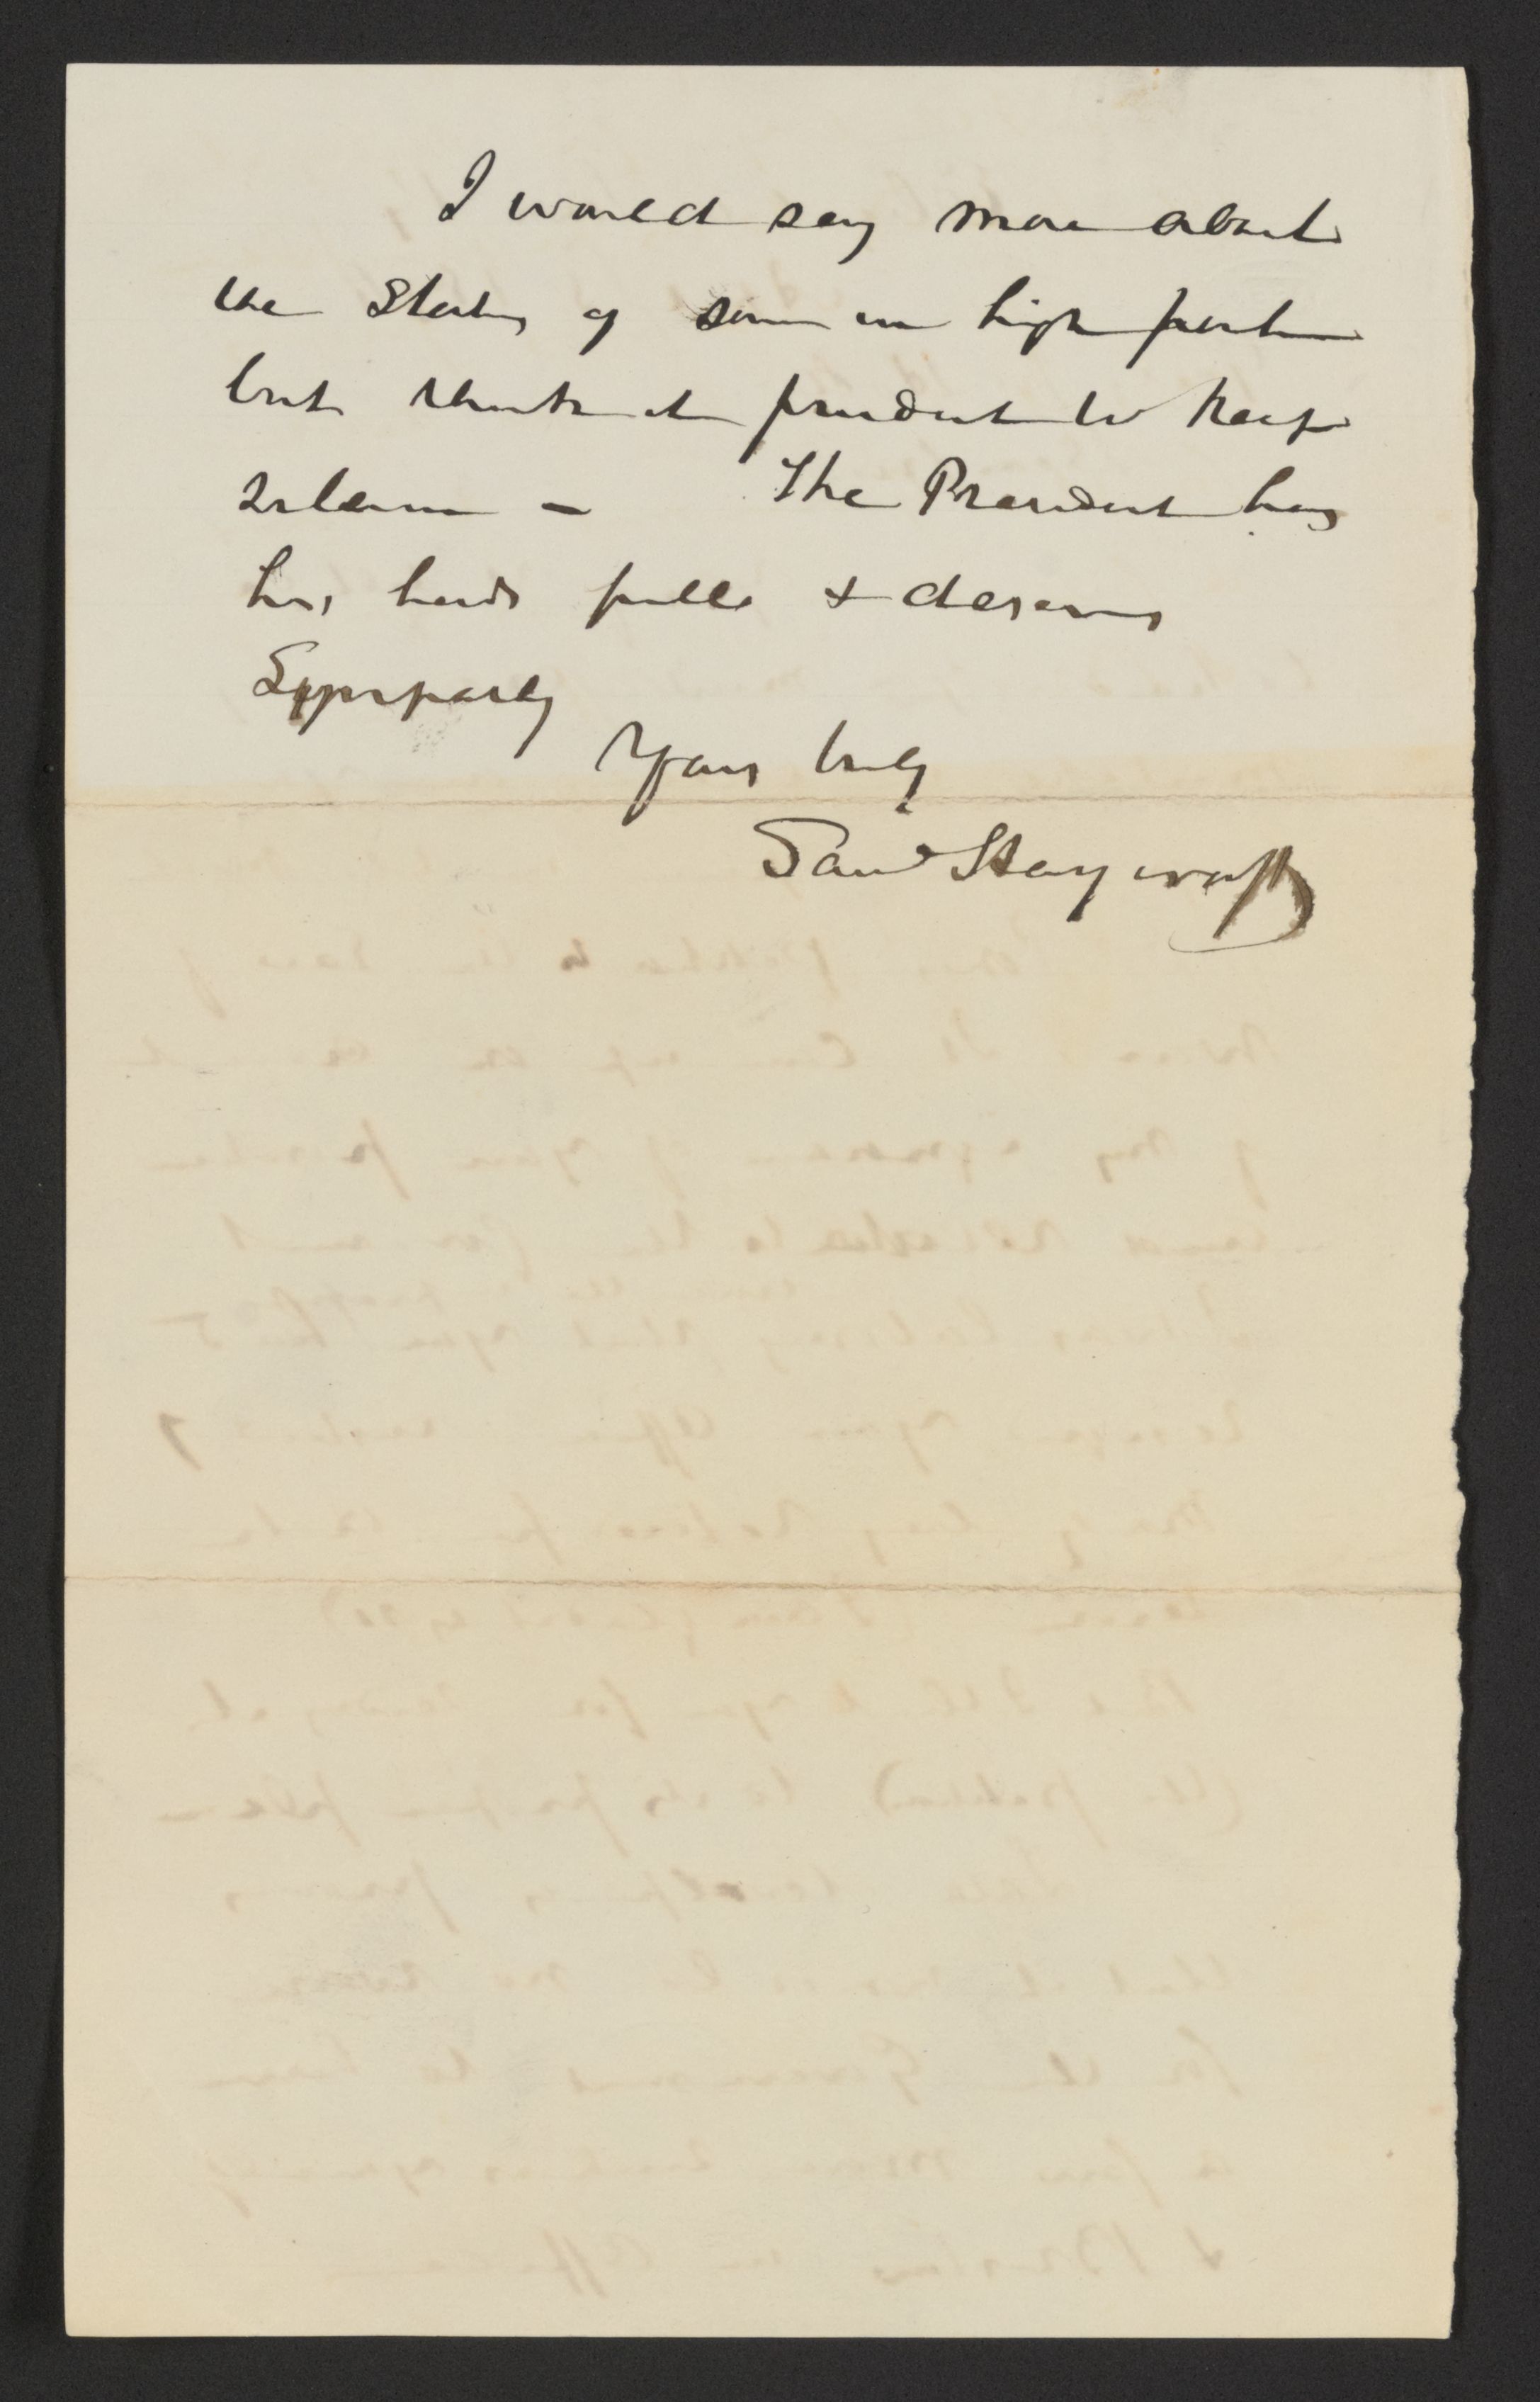 I would say more about
the Status of some in high position
but think it prudent to keep
silence – The President has
his hands full & deserves
Sympathy
Yours truly
Sam Haycraft